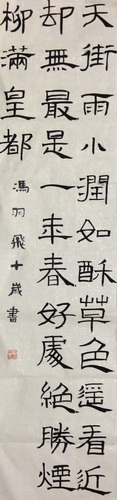 天街雨小潤如酥草色遥看近
却無最是一年春好處絶勝煙
柳滿皇都
馮羽飛十歲書